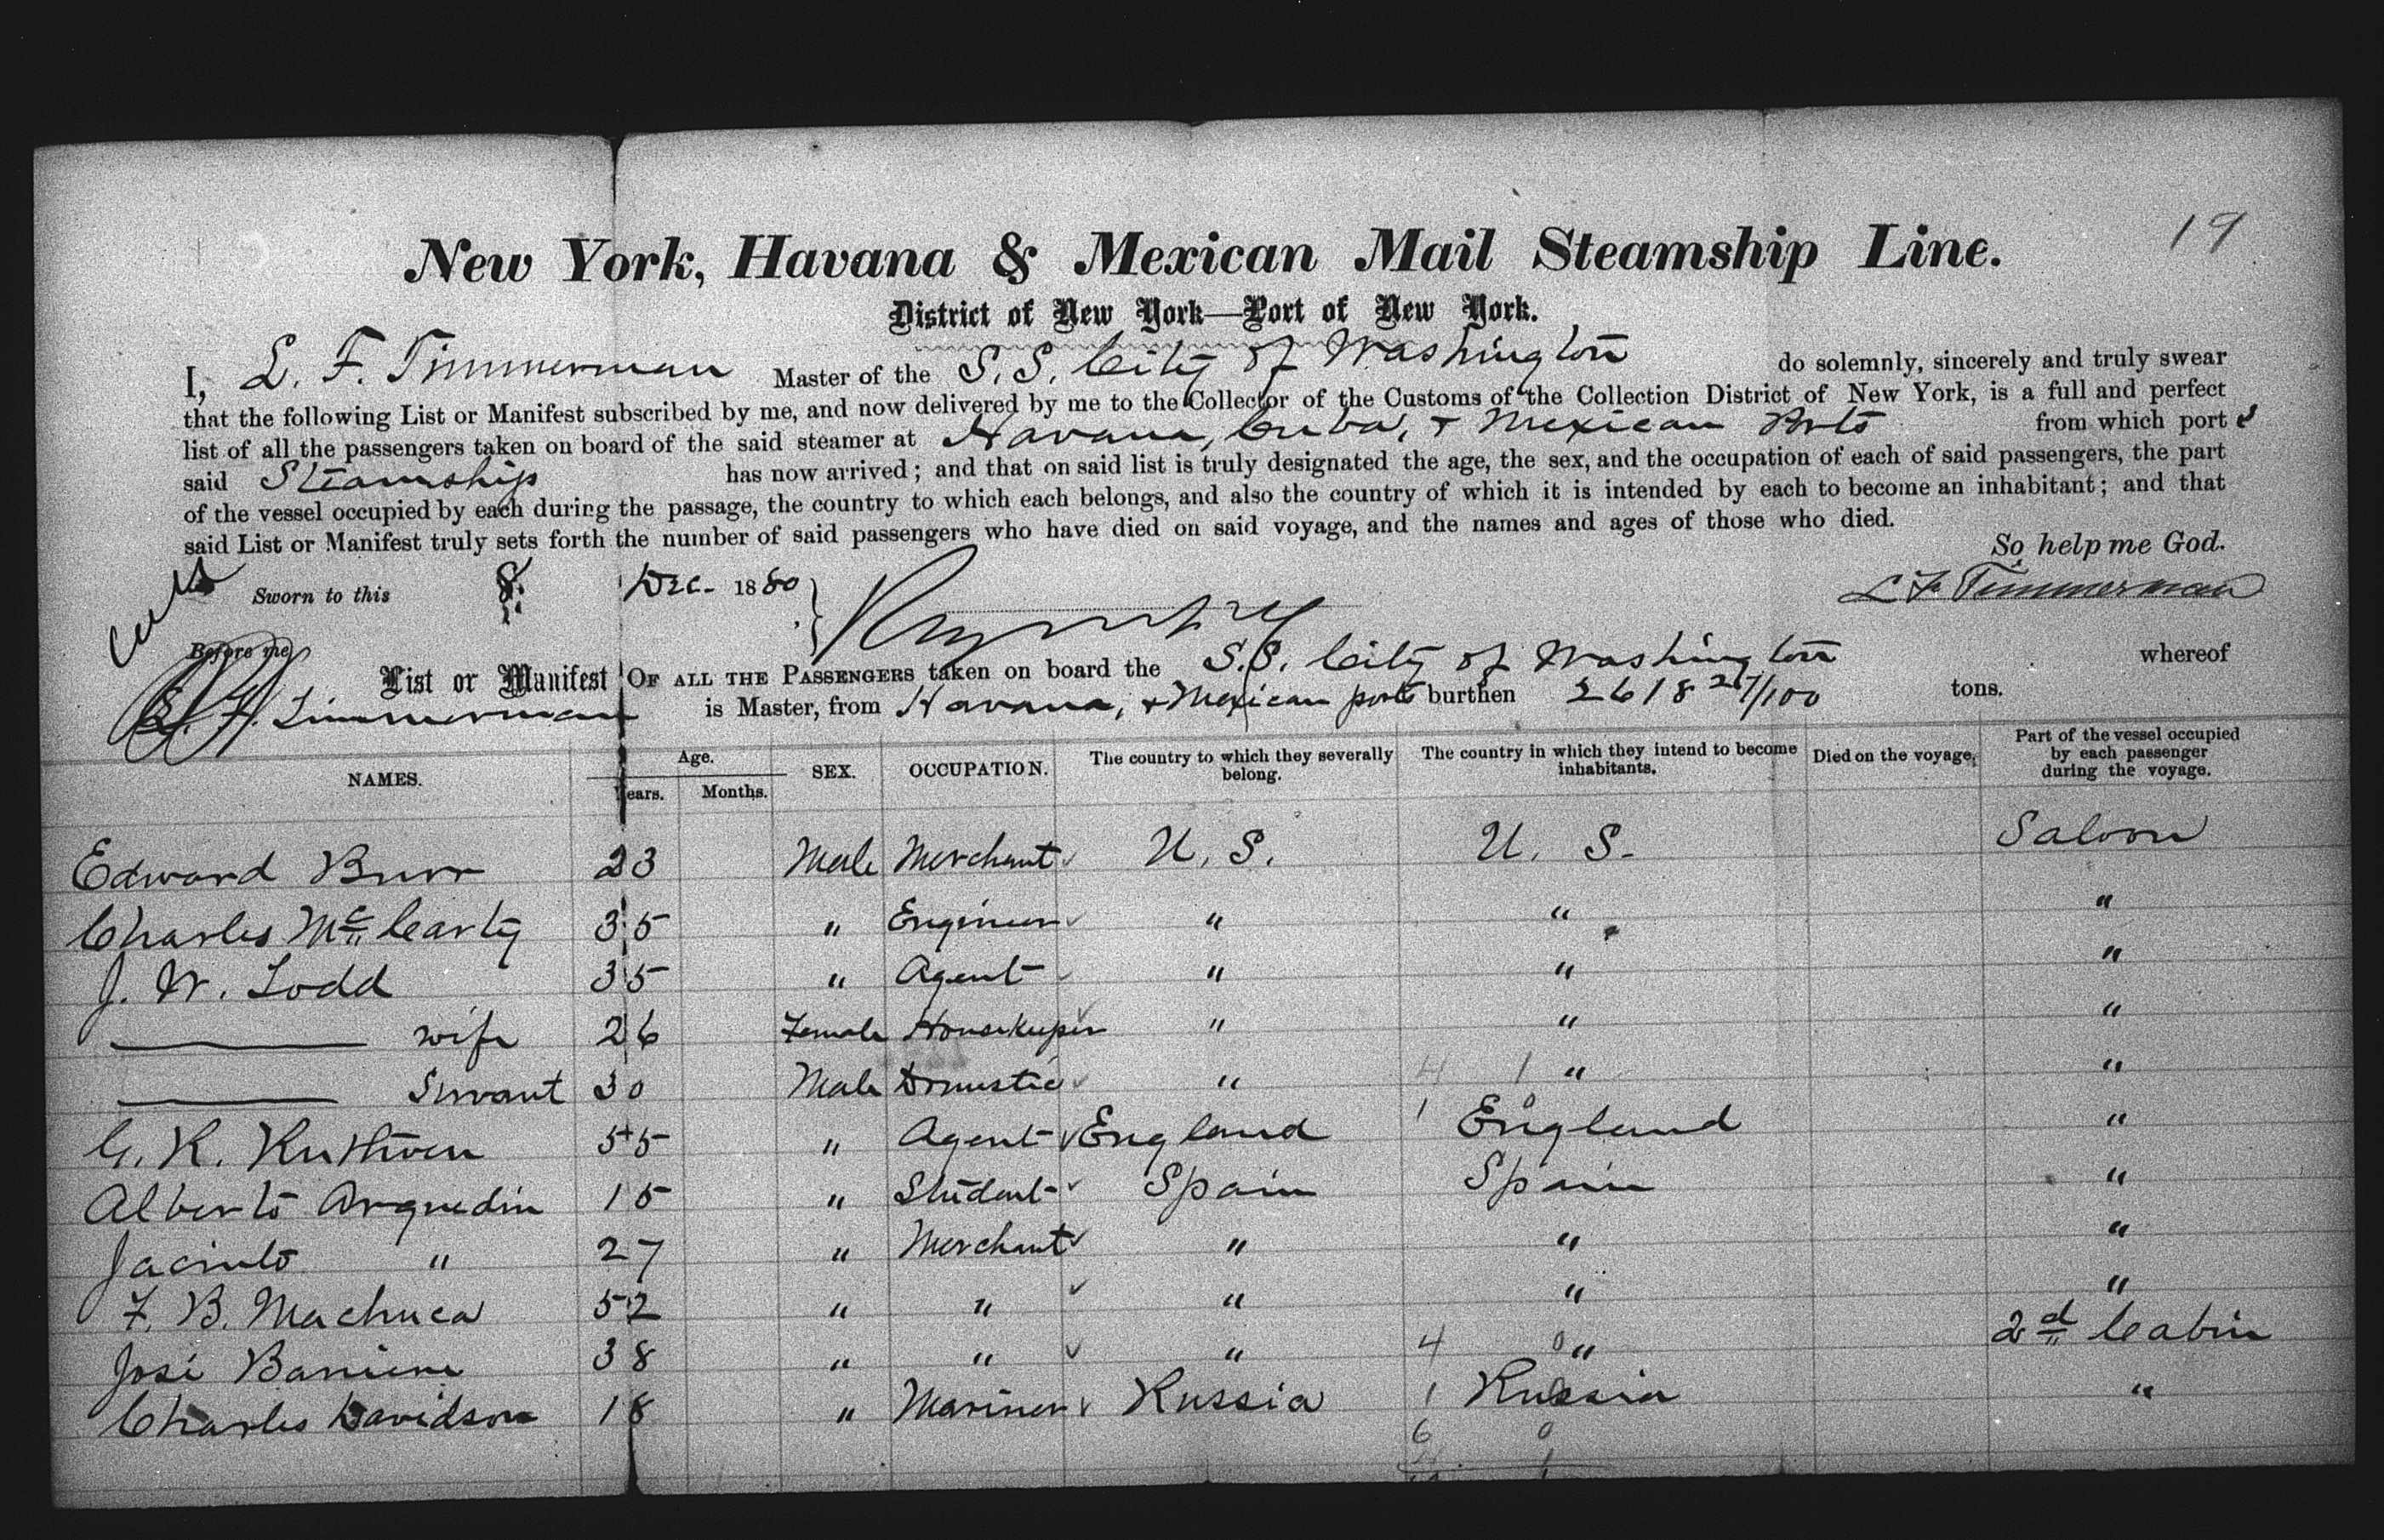 19
New York, Havana & Mexican Mail Steamship Line.
District of New York—Port of New York.
I, L. F. Timmerman Master of the S. S. City of Washington do solemnly, sincerely and truly swear
that the following List or Manifest subscribed by me, and now delivered by me to the Collector of the Customs of the Collection District of New York, is a full and perfect
list of all the passengers taken on board of the said steamer at Havana, Cuba, & Mexican Ports from which port s
said Steamship has now arrived; and that on said list is truly designated the age, the sex, and the occupation of each of said passengers, the part
of the vessel occupied by each during the passage, the country to which each belongs, and also the country of which it is intended by each to become an inhabitant; and that
said List or Manifest truly sets forth the number of said passengers who have died on said voyage, and the names and ages of those who died.
So help me God.
Sworn to this 8. Dec. 1880 L F Timmerman
Before me
List or Manifest OF ALL THE PASSENGERS taken on board the S.S. City of Washington whereof
L. F. Timmerman is Master, from Havana, & Mexican ports burthen 2618 27/100 tons.
NAMES. Age. Years. Months. SEX. OCCUPATION. The country to which they severally belong. The country in which they intend to become inhabitants. Died on the voyage. Part of the vessel occupied by each passenger during the voyage.
Edward Burr 23 Male Merchant U. S. U. S. Saloon
Charles Mc Carty 35 " Engineer " " "
J. W. Todd 35 " Agent " " "
wife 26 Female Housekeeper " " "
Servant 30 Male Domestic " 4 1 " "
G. R. Ruthven 55 " Agent England 1 0 England "
Alberto Arguedin 15 " Student Spain Spain "
Jacinto " 27 " Merchant " " "
F. B. Machuca 52 " " " " "
José 38 " " " 4 0 " 2d Cabin
Charles Davidson 18 " Mariner Russia 1 Russia "
6 0